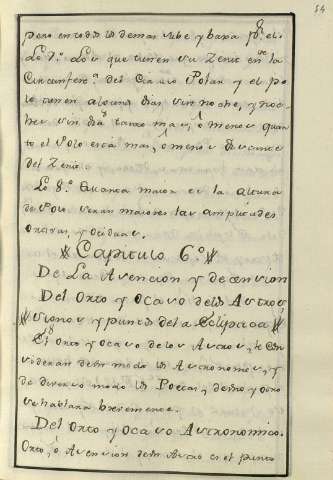 54
pero en todos los demas sube y baxa por el.
Lo 7.º Los que tienen su Zenit en la
Circunferª. del Circulo Polar y el po
lo tienen algunos dias sin noche, y noc-
hes sin dia, tanto mas, ó menos quan
to el Polo está mas, ó menos distante
del Zenit.
Lo 8.º Quanta maior es la altura
de Polo seran maiores las amplitudes
ortivas, y occiduas.
Capitulo 6.º
De La Ascencion y descension
Del Orto y Ocaso de los Astros,
signos y puntos de la Ecliptica
El Orto y Ocaso de los Astros, se con
sideran de un modo los Astronomos, y
de diverso modo los Poetas, y de uno y otro
se hablara brevemente.
Del Orto y Ocaso Astronomico.
Orto, ó Ascension de un Astro es el punto